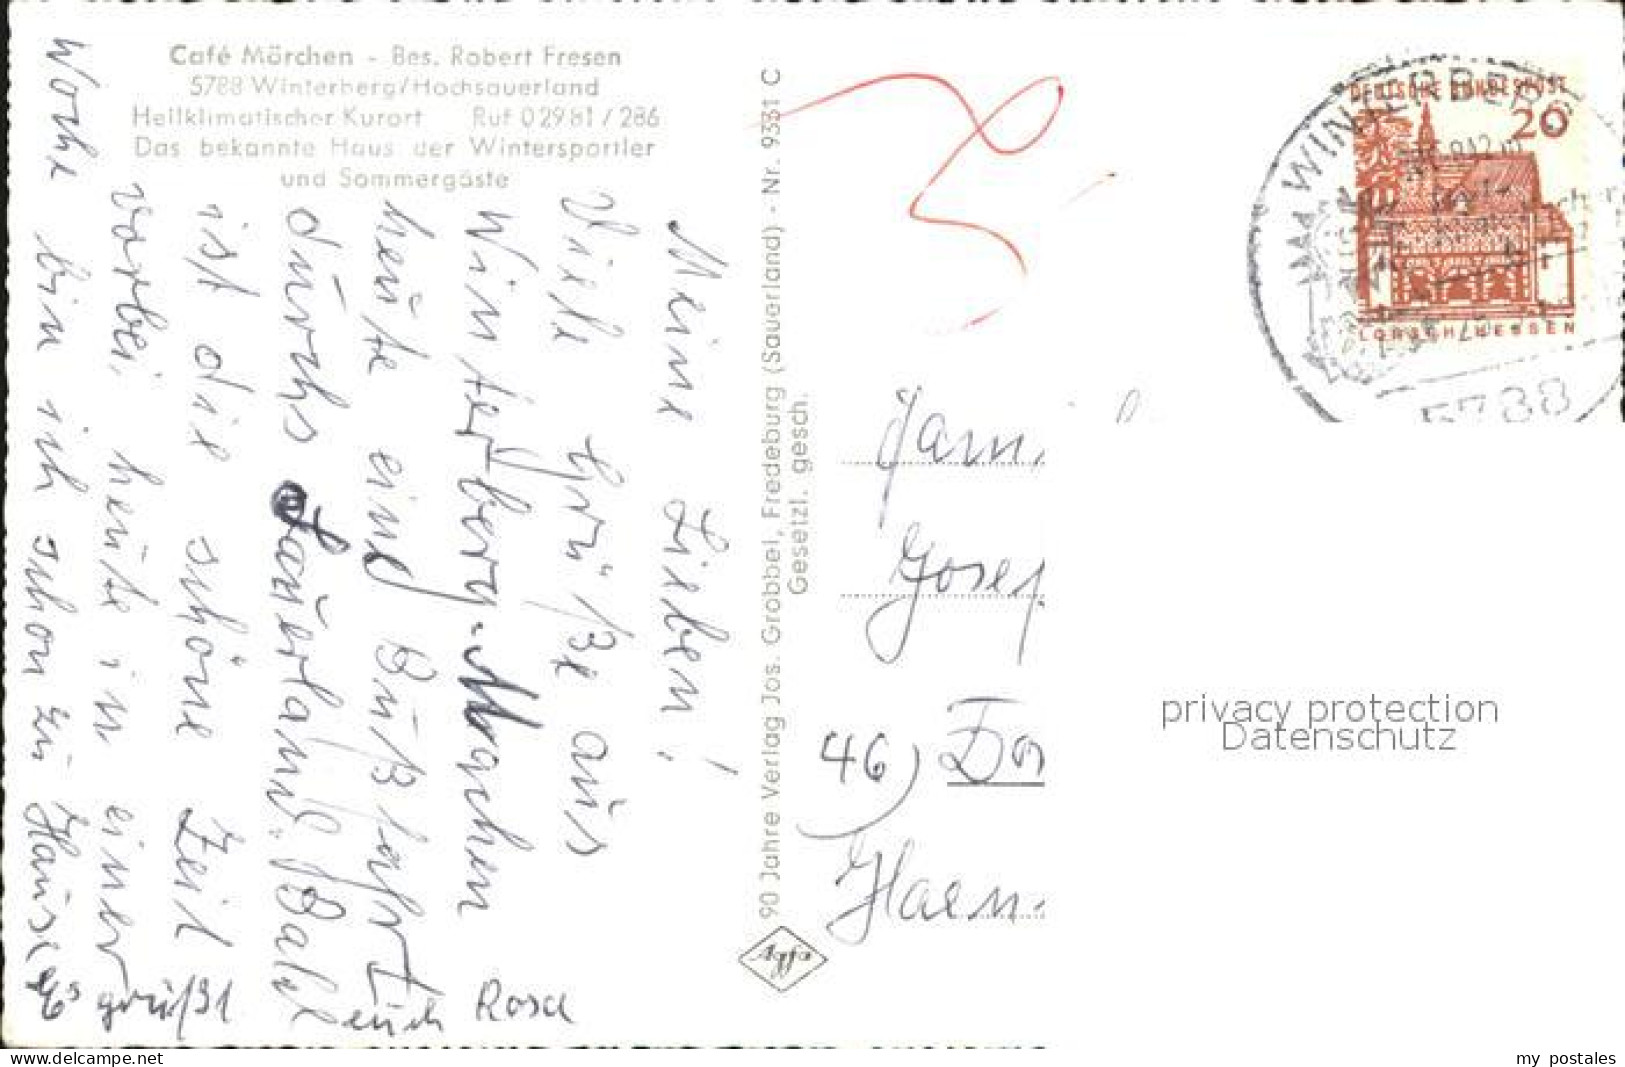 Café Mörchen - Bes. Robert Fresen
5788 Winterberg/Hochsauerland
Heilklimatischer Kurort Ruf 02981 / 286
Das bekannte Haus der Wintersportler
und Sommergäste
Meine Lieben!
Viele Grüße aus
Winterberg. Machen
heute eine Bußfahrt
durchs Sauerland. Bald
ist die schöne Zeit
vorbei, heute in einer
Woche bin ich schon zu Hause
Es grüßt euch Rosa
90 Jahre Verlag Jos. Grobbel, Fredeburg (Sauerland) - Nr. 9331 C
Gesetzl. gesch.
Agfa
DEUTSCHE BUNDESPOST
20
LORSCH/HESSEN
WINTERBERG
5788
Fam.
Josep
46) Dor
Haen
privacy protection
Datenschutz
www.delcampe.net
my_postales